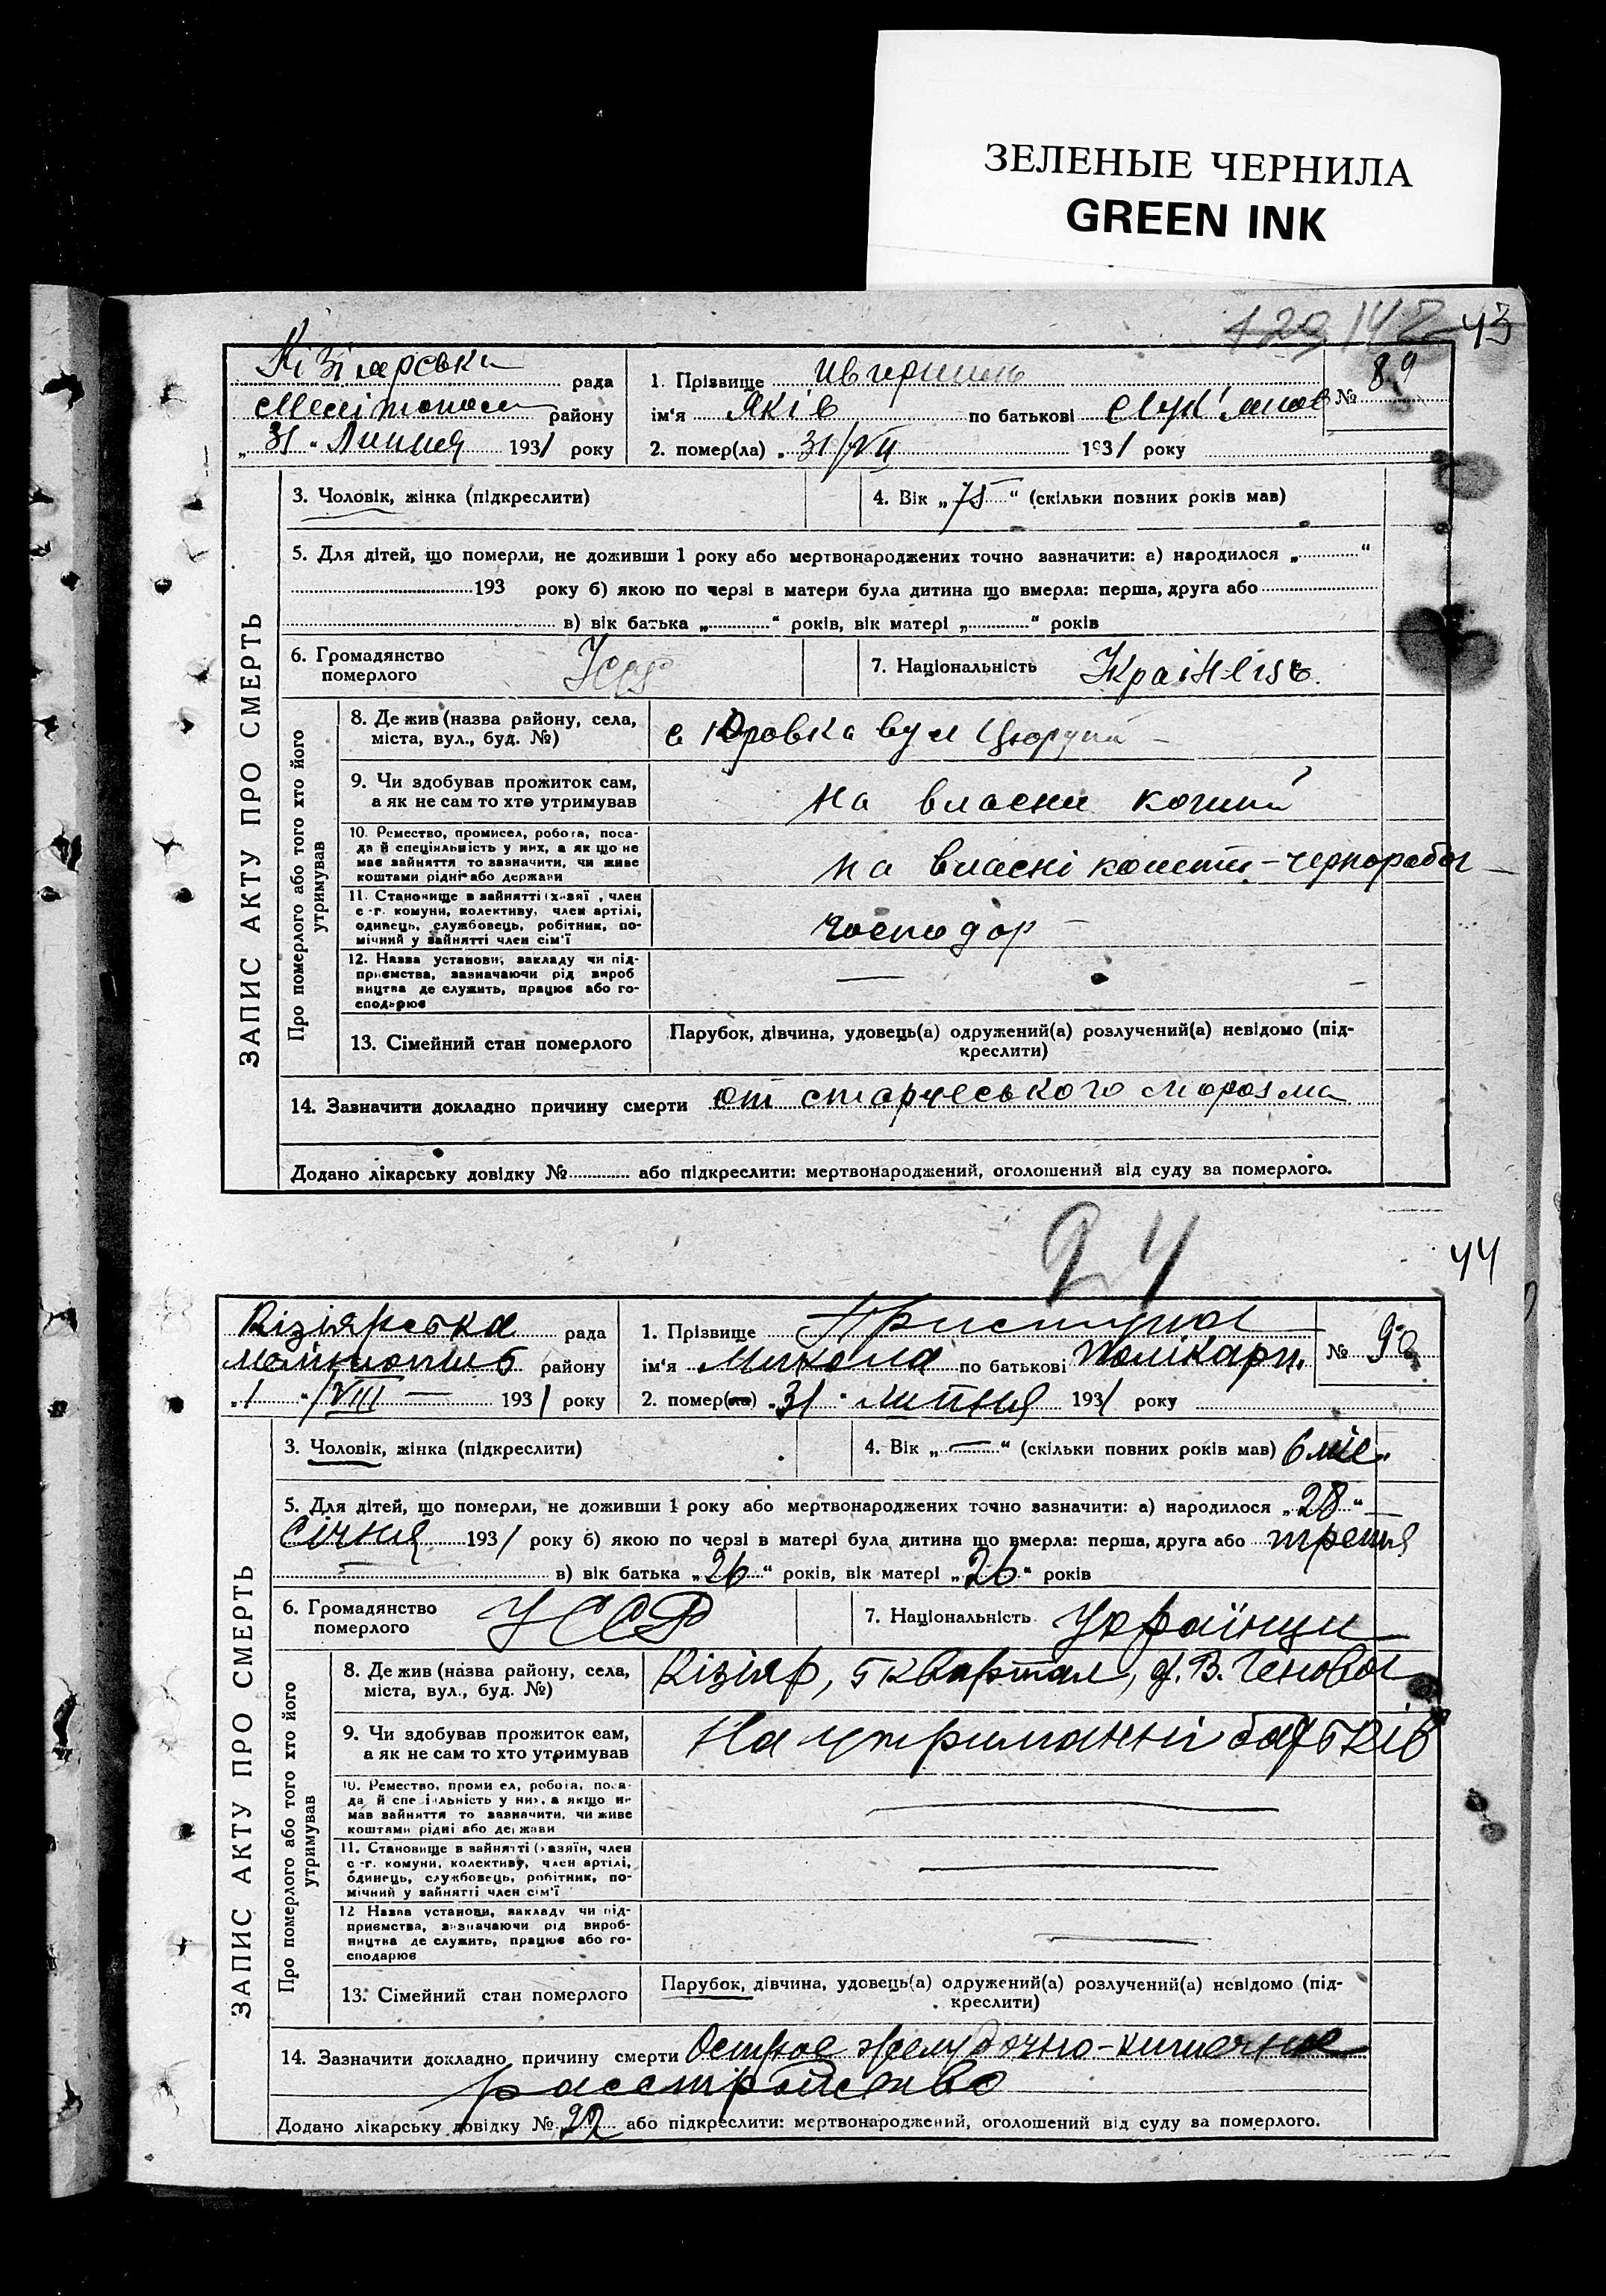 ЗЕЛЕНЫЕ ЧЕРНИЛА
GREEN INK
43
ЗАПИС АКТУ ПРО СМЕРТЬ
Кізіярська рада
район
"31" Липня 1931 року
1. Прізвище
ім'я Яків по батькові
№ 89
2. помер(ла) "31/VII 1931 року
3. Чоловік, жінка (підкреслити)
4. Вік „75" (скільки повних років мав)
5. Для дітей, що померли, не доживши 1 року або мертвонароджених точно зазначити: а) народилося „ "
193 року б) якою по черзі в матери була дитина що вмерла: перша, друга або
в) вік батька „ " років, вік матері „ " років
6. Громадянство
померлого
УССР
7. Національність
Про померлого або того хто його
утримував
8. Де жив (назва району, села,
міста, вул., буд. №)
с Юровка вул Цюрупи
9. Чи здобував прожиток сам,
а як не сам то хто утримував
на власни кошти
10. Ремество, промисел, робота, поса-
да й спеціяльність у них, а як що не
має зайняття то зазначити, чи живе
коштами рідні або держави
на власні кошти - чернорабоч
11. Становище в зайнятті (хазяї , член
с-г. комуни, колективу, член артілі,
одинець, службовець, робітник, по-
мічний у зайнятті член сім'ї
господар
12. Назва установи, закладу чи під-
приємства, зазначаючи рід вироб
ництва де служить, працює або го-
сподарює
—
13. Сімейний стан померлого
Парубок, дівчина, удовець(а) одружений(а) розлучений(а) невідомо (під-
креслити)
14. Зазначити докладно причину смерти от старческького
Додано лікарську довідку № або підкреслити: мертвонароджений, оголошений від суду за померлого.
94
44
ЗАПИС АКТУ ПРО СМЕРТЬ
Кізіярська рада
району
"1" /VIII — 1931 року
1. Прізвище Приступа
ім'я Микола по батькові Полікарп.
№ 90
2. помер(ла) "31" липня 1931 року
3. Чоловік, жінка (підкреслити)
4. Вік „—" (скільки повних років мав) 6 міс.
5. Для дітей, що померли, не доживши 1 року або мертвонароджених точно зазначити: а) народилося „28"
Січня 1931 року б) якою по черзі в матері була дитина що вмерла: перша, друга або третя
— в) вік батька „26" років, вік матері „26" років
6. Громадянство
померлого
УССР
7. Національність Українци
Про померлого або того хто його
утримував
8. Де жив (назва району, села,
міста, вул., буд. №)
Кізіяр, 5 квартал,
9. Чи здобував прожиток сам,
а як не сам то хто утримував
На утриманні батьків
10. Ремество, проми ел, робота, поса-
да й спе іяльність у них, а якщо не
мав зайняття то зазначити, чи живе
коштами рідні або держави
—
11. Становище в зайнятті (хазяїн, член
с-г. комуни, колективу, член артілі,
одинець, службовець, робітник, по-
мічний у зайнятті член сім'ї
—
12 Назва установи, закладу чи під-
приємства, зазначаючи рід вироб-
ництва де служить, працює або го-
сподарює
—
13. Сімейний стан померлого
Парубок, дівчина, удовець(а) одружений(а) розлучений(а) невідомо (під-
креслити)
14. Зазначити докладно причину смерти Острое желудочно-кишечное
расстройство
Додано лікарську довідку № або підкреслити: мертвонароджений, оголошений від суду за померлого.